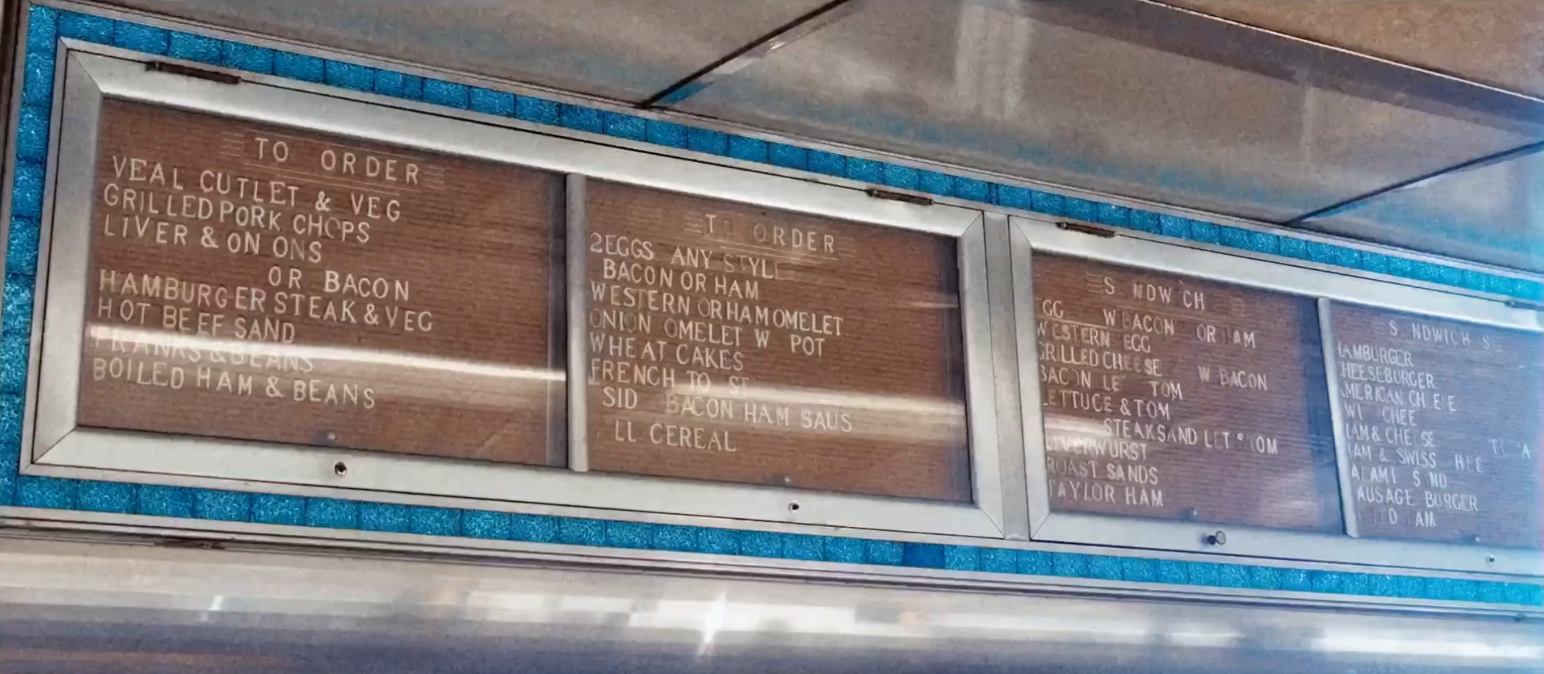 TO ORDER
VEAL CUTLET & VEG
GRILLED PORK CHOPS
LIVER & ON ONS
OR BACON
HAMBURGER STEAK & VEG
HOT BEEF SAND
FRANKS & BEANS
BOILED HAM & BEANS
TO ORDER
2EGGS ANY STYL
BACON OR HAM
WESTERN OR HAM OMELET
ONION OMELET W POT
WHEAT CAKES
FRENCH TO ST
SID BACON HAM SAUS
LL CEREAL
S NDW CH
GG W BACON OR HAM
WESTERN EGG
GRILLED CHEESE W BACON
BACON LE TOM
LETTUCE & TOM
STEAK SAND LET TOM
LIVERWURST
ROAST SANDS
TAYLOR HAM
S NDWICH S
HAMBURGER
HEESEBURGER
MERICAN CH E E
WI CHEE
HAM & CHE SE
HAM & SWISS HEE
ALAMI S ND
AUSAGE BURGER